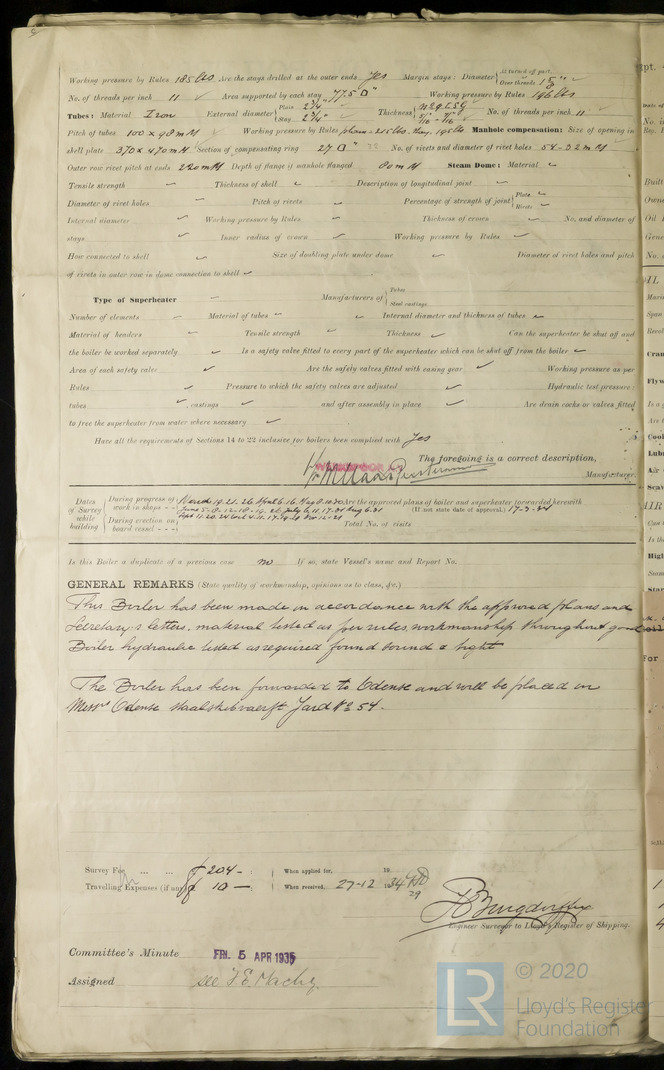 Working pressure by Rules 185 lbs Are the stays drilled at the outer ends Yes Margin stays: Diameter { At turned off part, Over threads 1 5/8"
No. of threads per inch 11 Area supported by each stay 77.5 □" Working pressure by Rules 196 lbs
Tubes: Material Iron External diameter { Plain 2 3/4" Stay 2 3/4" Thickness { 5/16" - 7/16" No. of threads per inch 11
Pitch of tubes 100 x 98 mM Working pressure by Rules plain 215 lbs. 195 lbs Manhole compensation: Size of opening in
shell plate 370 x 470 mM Section of compensating ring 27 □" No. of rivets and diameter of rivet holes 54 - 32 mM
Outer row rivet pitch at ends 220 mM Depth of flange if manhole flanged 80 mM Steam Dome: Material
Tensile strength Thickness of shell Description of longitudinal joint
Diameter of rivet holes Pitch of rivets Percentage of strength of joint { Plate Rivets
Internal diameter Working pressure by Rules Thickness of crown No. and diameter of
stays Inner radius of crown Working pressure by Rules
How connected to shell Size of doubling plate under dome Diameter of rivet holes and pitch
of rivets in outer row in dome connection to shell
Type of Superheater Manufacturers of { Tubes Steel castings
Number of elements Material of tubes Internal diameter and thickness of tubes
Material of headers Tensile strength Thickness Can the superheater be shut off and
the boiler be worked separately Is a safety valve fitted to every part of the superheater which can be shut off from the boiler
Area of each safety valve Are the safety valves fitted with easing gear Working pressure as per
Rules Pressure to which the safety valves are adjusted Hydraulic test pressure:
tubes , castings and after assembly in place Are drain cocks or valves fitted
to free the superheater from water where necessary
Have all the requirements of Sections 14 to 22 inclusive for boilers been complied with Yes
The foregoing is a correct description,
Manufacturer.
Dates of Survey while building { During progress of work in shops - - Are the approved plans of boiler and superheater forwarded herewith
(If not state date of approval.) 17-3-34
During erection on board vessel - - - Total No. of visits
Is this Boiler a duplicate of a previous case no If so, state Vessel's name and Report No.
GENERAL REMARKS (State quality of workmanship, opinions as to class, &c.)
This Boiler has been made in accordance with the approved plans and
Secretary's letters, material tested as per rules, workmanship throughout good
Boiler hydraulic tested as required found sound & tight
The Boiler has been forwarded to Odense and will be placed in
Messrs Odense Staalskibsvaerft Yard No 54.
Survey Fee ... ... £ 204 - : When applied for, 19
Travelling Expenses (if any) £ 10 - : When received, 27-12 1934
29
Engineer Surveyor to Lloyd's Register of Shipping.
Committee's Minute FRI. 5 APR 1935
Assigned see F.E. Machy.
© 2020
LR
Lloyd's Register
Foundation